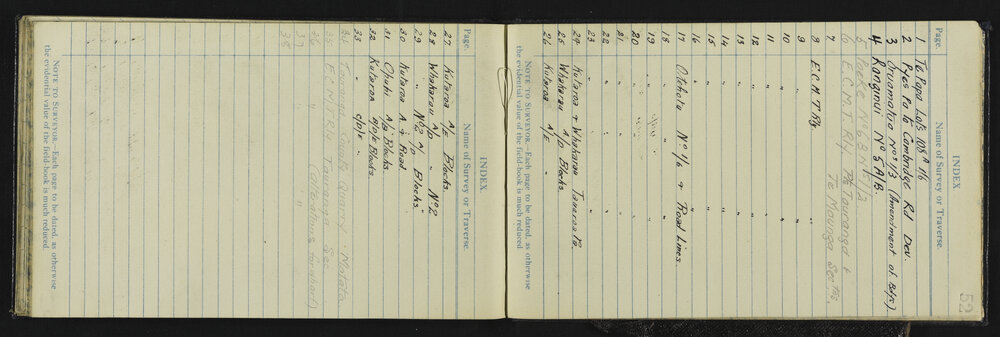 52
INDEX.
Page. Name of Survey or Traverse.
1 Te Papa Lots 108A 116
2 Pyes Pa to Cambridge Rd Dev.
3 Oruamatua Nos 1/3 (Amendment of Bdys)
4 Ranginui No 5 A/B.
5 Poeke No 6 B N R 1/3
6 E.C.M.T. Rly Tauranga &
7 Te Maunga Sections.
8 E.C.M.T Rly
9 " "
10 " "
11 " "
12 " "
13 " "
14 " "
15 " "
16 " "
17 Otohota No 1/6 & Road Lines.
18
19
20
21
22
23
24 Kutaroa & Whakarau
25 Whakarau A/D Blocks.
26 Kutaroa A/E "
NOTE TO SURVEYOR.—Each page to be dated, as otherwise
the evidential value of the field-book is much reduced.
INDEX.
Page. Name of Survey or Traverse.
27 Kutaroa A/E Blocks.
28 Whakarau A/D " No 2
29 " No 2 A/D Blocks.
30 Kutaroa A & Road.
31 Opuhi A/B Blocks.
32 Kutaroa Blocks.
33 "
34 Tauranga County Quarry. Matata
35 E.C.M.T. Rly Tauranga Sec
36 " "
37
38
NOTE TO SURVEYOR.—Each page to be dated, as otherwise
the evidential value of the field-book is much reduced.